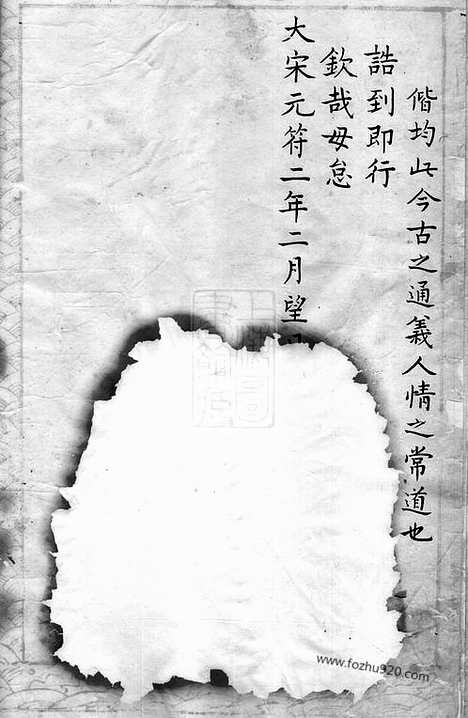 偕均此今古之通義人情之常道也
誥到即行
欽哉毋怠
大宋元符二年二月望
www.fozhu920.com